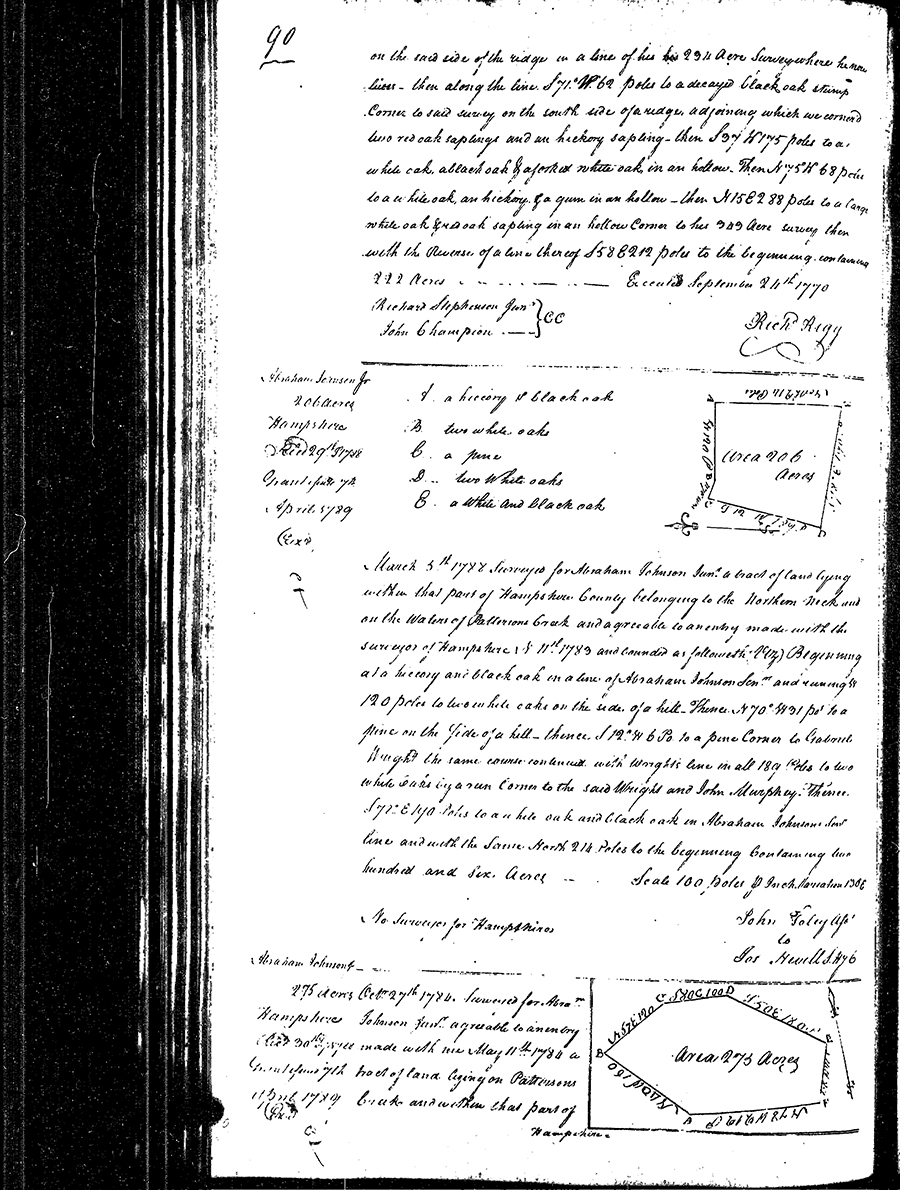 90
on the said side of the ridge in a line of his 294 Acre Survey where he now
lives - then along the line S71° W 62 poles to a decayed black oak stump
Corner to said survey on the south side of a ridge, adjoining which we corner'd
two red oak saplings and an hickory sapling - then S37 W175 poles to a
white oak, a black oak & a forked white oak, in an hollow. Then N75W 68 poles
to a white oak, an hickory & a gum in an hollow - then N15E288 poles to a large
white oak & red oak sapling in an hollow Corner to his 343 Acre survey then
with the Reverse of a line thereof S58E212 poles to the beginning containing
222 Acres - - - Executed September 24th 1770
Richard Stephenson Junr
John Champion } CC
Richd Rigg
Abraham Jr
206 acres
Hampshire
29th
Grant 7th
April 1789
Exd
A. a hicory & black oak
B. two white oaks
C. a pine
D. two White oaks
E. a White and black oak
Area 206
Acres
March 5th Surveyed for Abraham Johnson Junr a tract of land lying
within that part of Hampshire County belonging to the Northern Neck and
on the Waters of Pattersons Creek and agreeable to an entry made with the
surveyor of Hampshire 11th 1783 and bounded as followeth (Viz) Beginning
at a hiccory and black oak in a line of Abraham Johnson Senr and running
120 poles to two white oaks on the side of a hill - Thence N70° W31 po to a
pine on the Side of a hill - thence S12°W 6 Po to a pine Corner to Gabriel
Wright the same course continued with Wright's line in all 189 Poles to two
white Oaks by a run Corner to the said Wright and John Murphey. Thence
E 190 Poles to a white oak and black oak in Abraham Johnsons Senr
line and with the Same North 214 Poles to the beginning Containing two
hundred and six Acres - Scale 100 poles Inch Variation
No Surveyor for Hampshire
John Foley Asst
to
Jos Nevill S.H
Abraham Johnson Jr
275 Acres
Hampshire
30th
Grant 7th
April 1789
Exd
Octr 27th 1784. Surveyed for Abrm
Johnson Junr agreeable to an entry
made with me May 11th 1784 a
tract of land lying on Pattersons
Creek and within that part of
Hampshire
Area 275 Acres
S80E 100